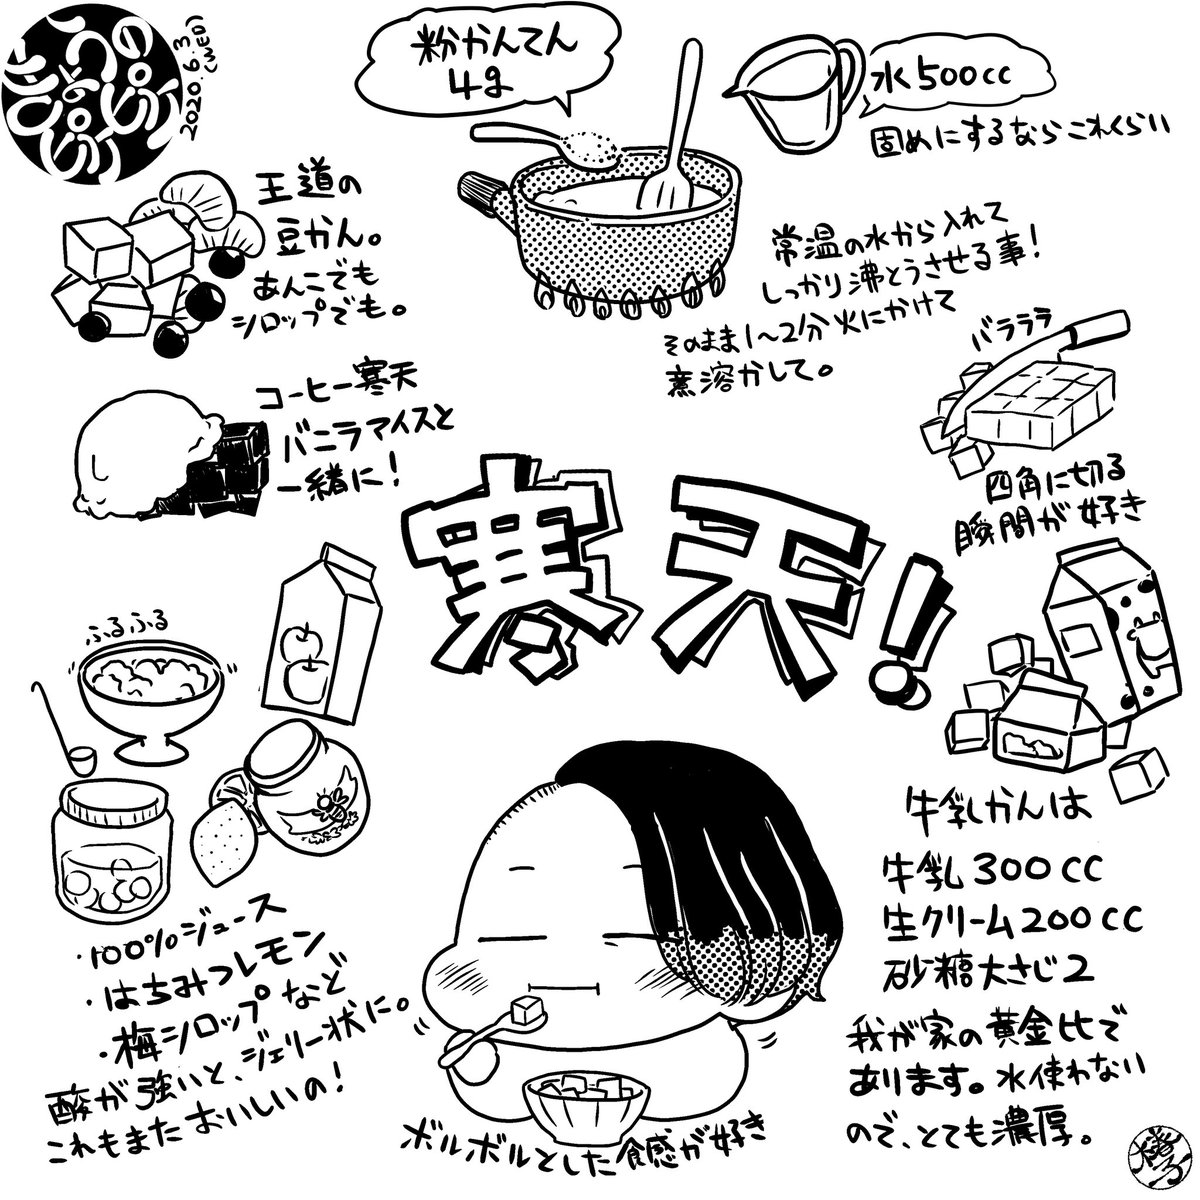 2020.6.3
(WED)
粉かんてん
4g
水500cc
固めにするならこれくらい
王道の
豆かん。
あんこでも
シロップでも。
常温の水から入れて
しっかり沸とうさせる事!
そのまま1〜2分火にかけて
煮溶かして。
バラララ
四角に切る
瞬間が好き
コーヒー寒天
バニラアイスと
一緒に!
寒天!
ふるふる
・100%ジュース
・はちみつレモン
・梅シロップなど
酸が強いと、ジェリー状に。
これもまたおいしいの!
牛乳かんは
牛乳300CC
生クリーム200CC
砂糖大さじ2
我が家の黄金比で
あります。水使わない
ので、とても濃厚。
ボルボルとした食感が好き